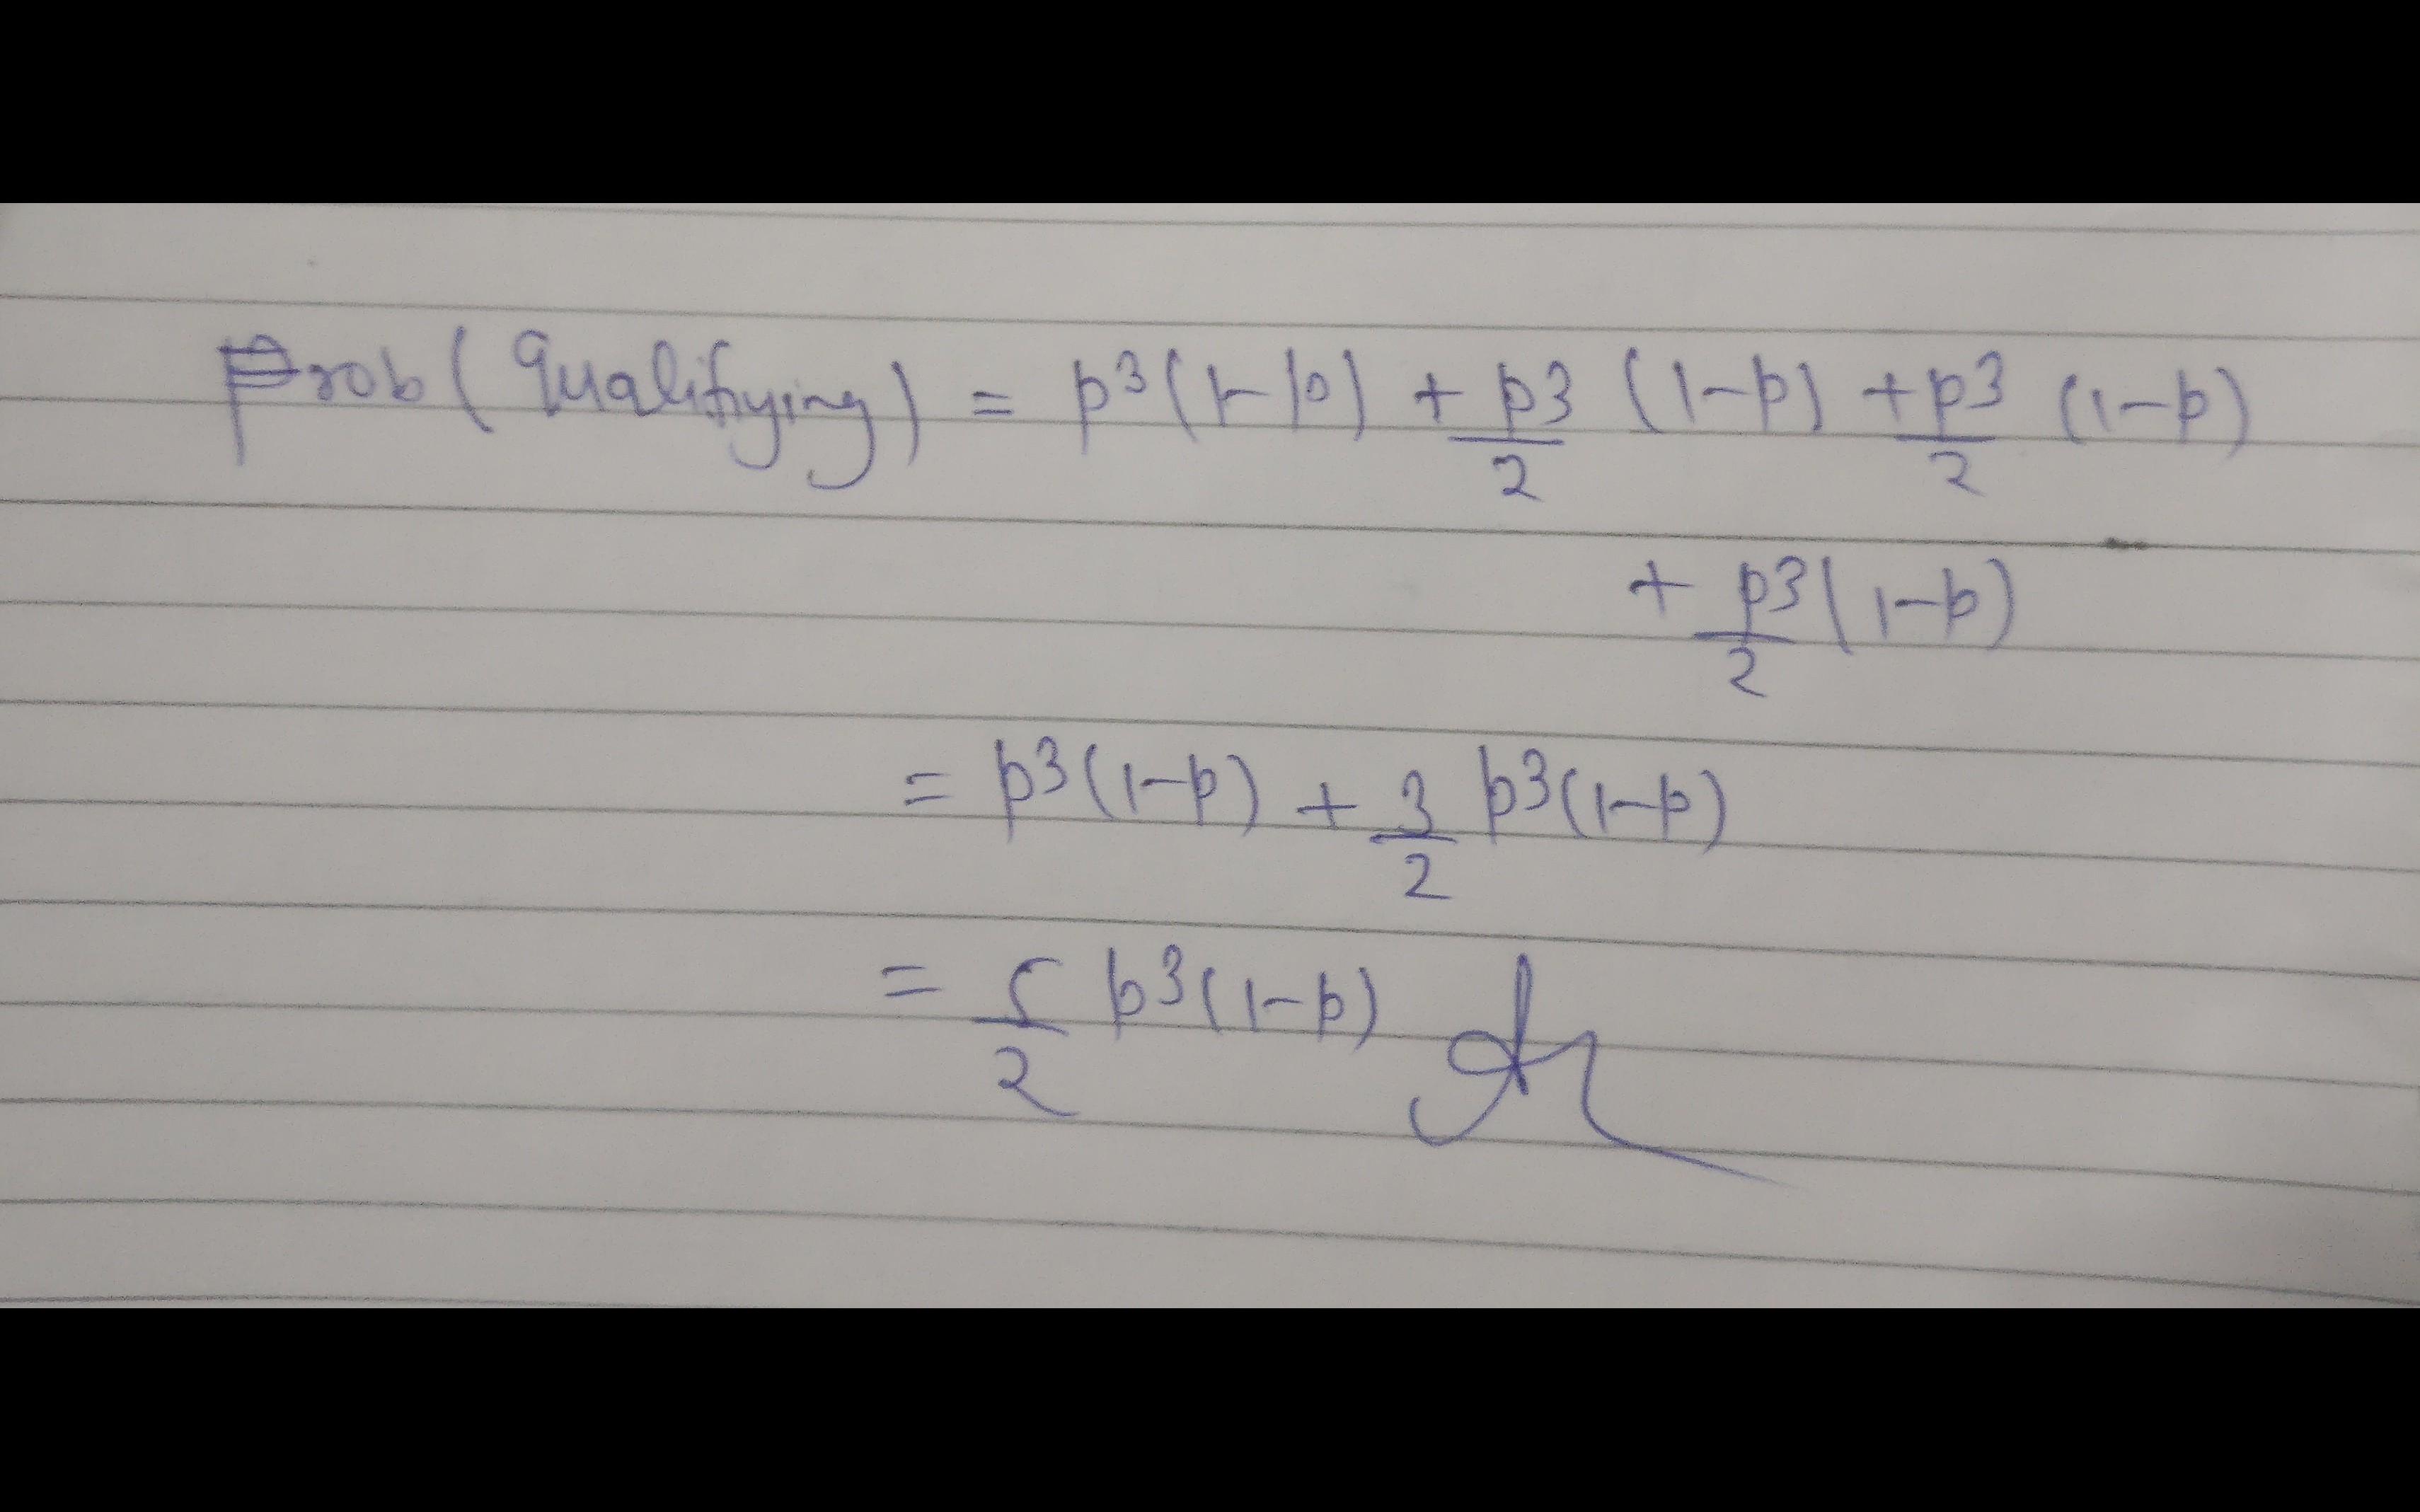 Prob(Qualifiying) = p³(1-p) + p3/2 (1-p) + p3/2 (1-p)
+ p3/2 (1-p)
= p³(1-p) + 3/2 p³(1-p)
= 5/2 p³(1-p)